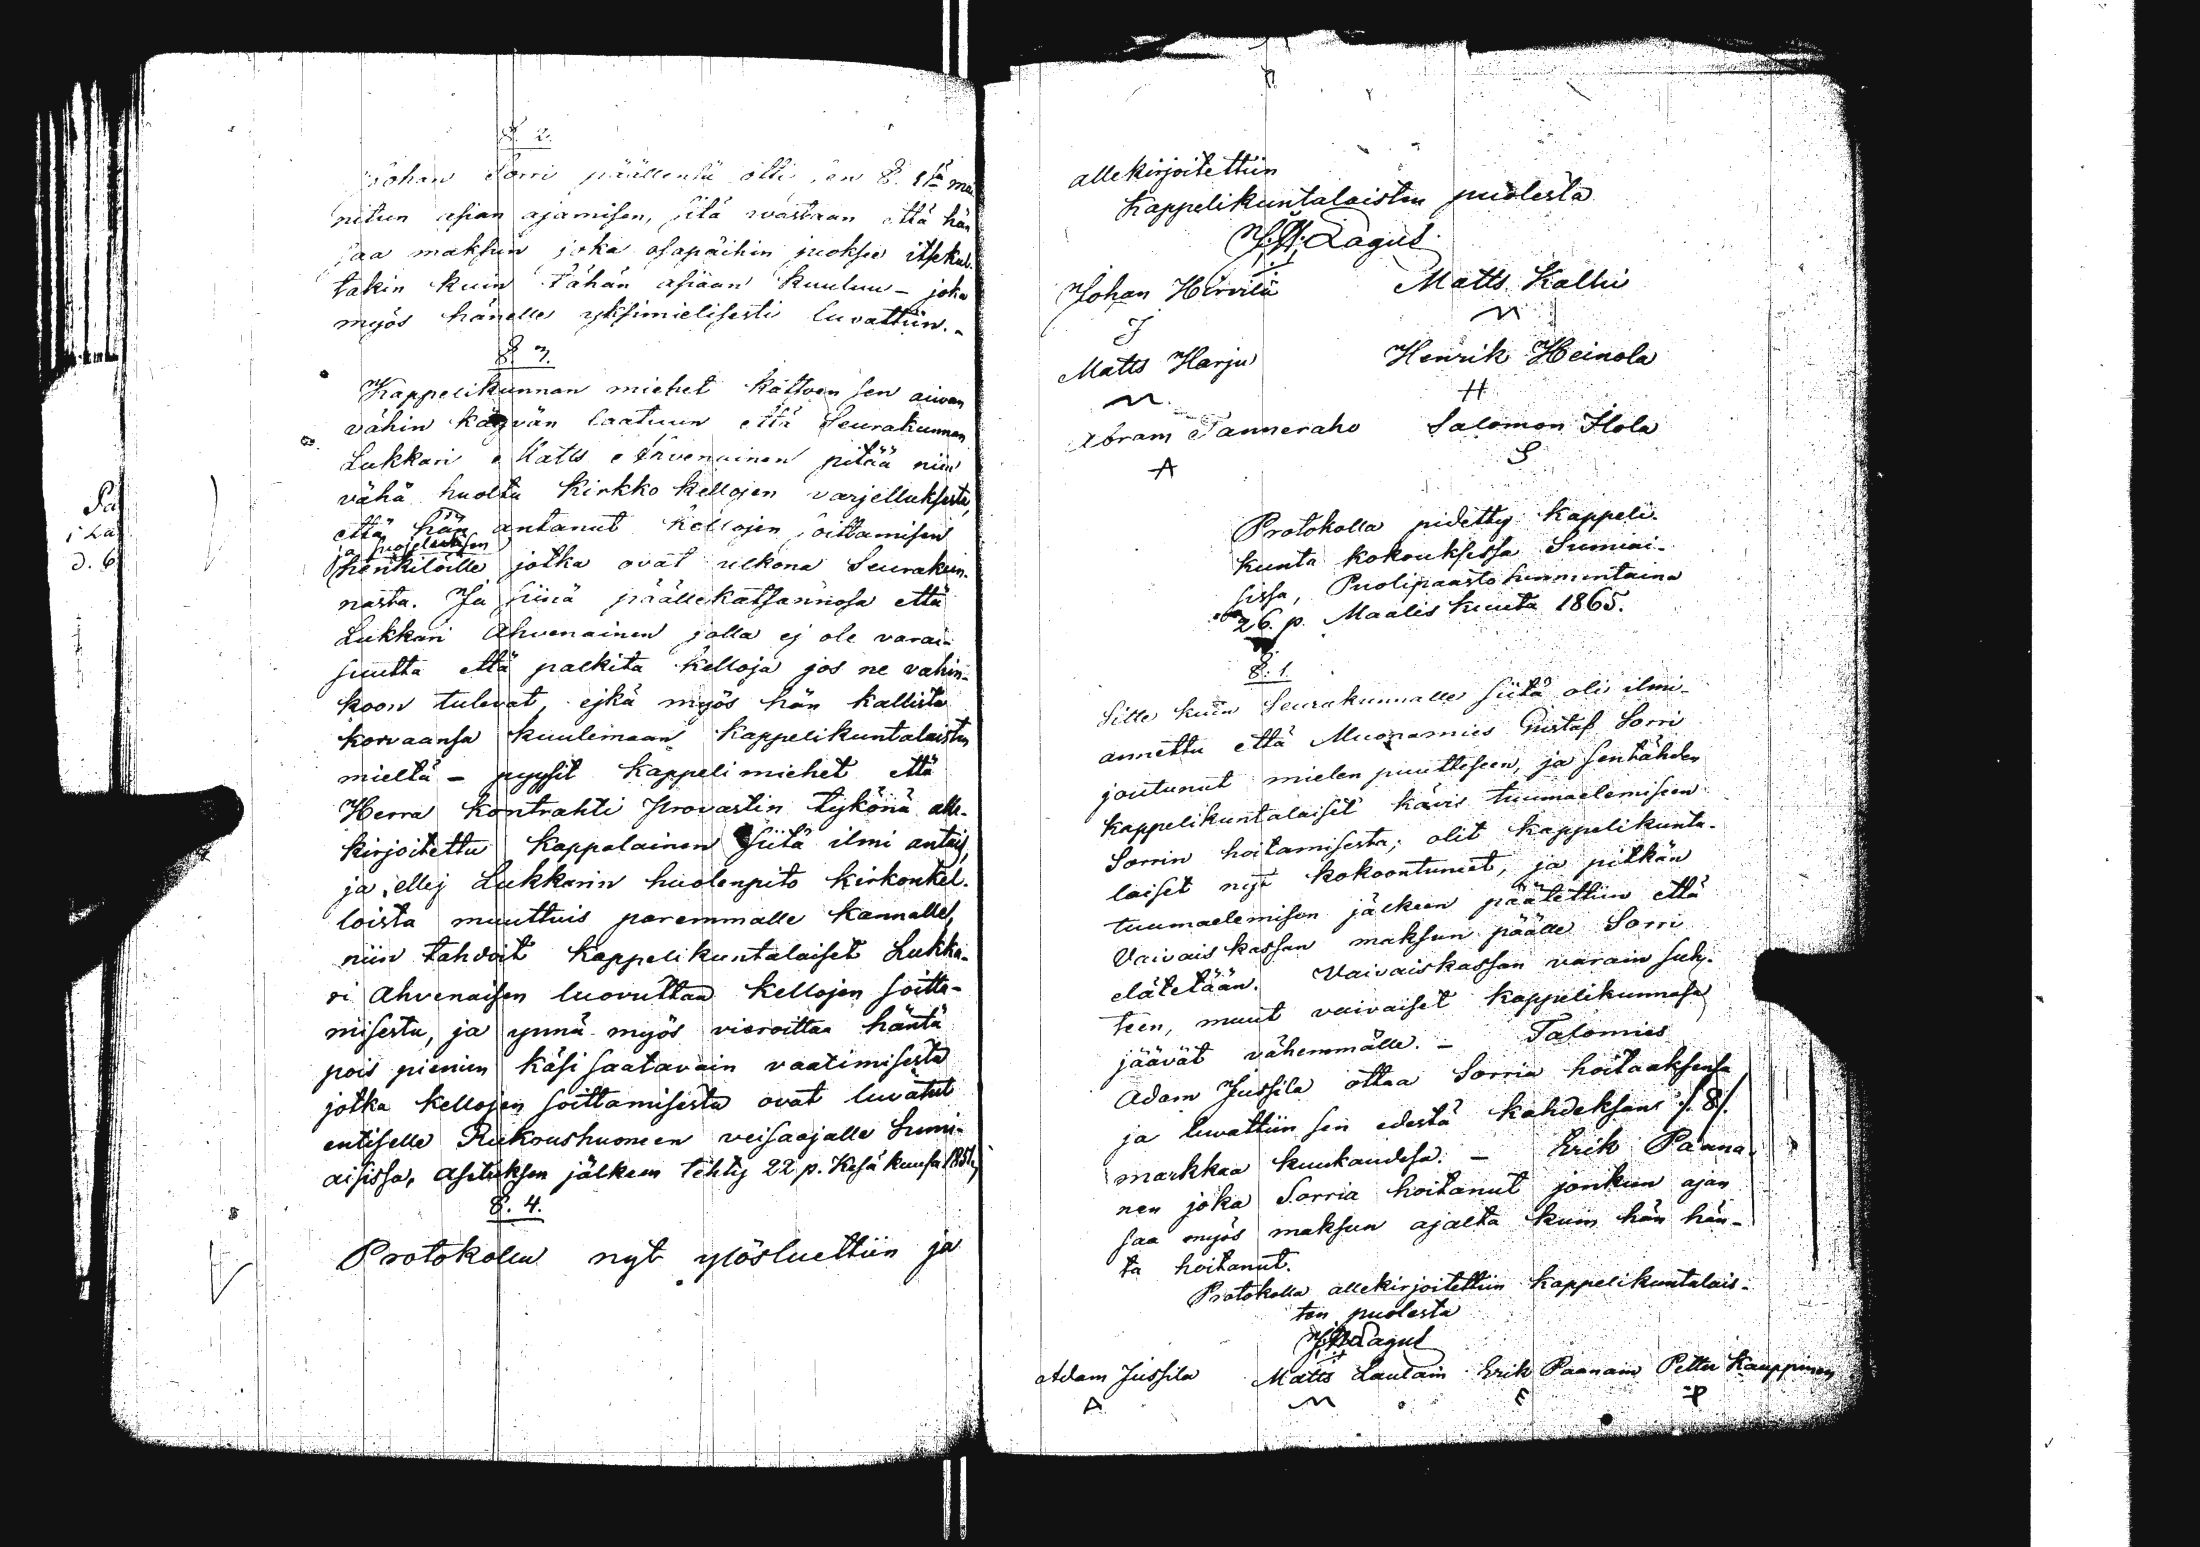 § 2.
Johan Sorri päällensä otti sen §. 1sä mai
nitun asian ajamisen, sitä vastaan että hän
saa maksun joka osapäihin juoksee itsekul-
takin kuin tähän asiaan kuuluu – joka
myös hänelle yksimielisesti luvattiin. –
§ 3.
Kappelikunnan miehet kattoen sen aivan
vähin käyvän laatuun että Seurakunnan
Lukkari Matts Ahvenainen pitää niin
vähä huolta Kirkko kellojen varjelluksesta,
että hän antanut kellojen soittamisen
ja suojeluksen
henkilöille jotka ovat ulkona Seurakun-
nasta. Ja siinä päällekatsannosa että
Lukkari Ahvenainen jolla ej ole varai-
suutta että palkita kelloja jos ne vahin-
koon tulevat, ejkä myös hän kallista
korvaansa kuulemaan kappelikuntalaisten
mieltä – pyysit kappeli miehet että
Herra Kontrahti Provastin tykönä alle-
kirjoitettu Kappalainen siitä ilmi antais,
ja, ellej Lukkarin huolenpito kirkonkel-
loista muuttuis paremmalle kannalle,
niin tahdoit kappelikuntalaiset Lukka-
ri Ahvenaisen luovuttaa kellojen soitta-
misesta, ja ynnä myös vieroittaa häntä
pois pienien käsi saatavain vaatimisesta
jotka kellojen soittamisesta ovat luvatut
entiselle Rukoushuoneen veisaajalle Sumi-
aisissa, asetuksen jälkeen tehty 22 p. Kesä kuusa 1851,
§. 4.
Protokolla nyt ylösluettiin ja
allekirjoitettiin
kappelikuntalaisten puolesta
Lagus
Johan Hirvilä Matts Kallio
J M
Matts Harju Henrik Heinola
M H
Abram Tanneraho Salomon Ilola
A S
Protokolla pidetty kappeli-
kunta kokouksessa Sumiai-
sissa, Puolipaasto sunnuntaina
26. p. Maalis kuuta 1865.
§. 1.
Sitte kuin Seurakunnalle siitä oli ilmi-
annettu että Muonamies Gustaf Sorri
joutunut mielen puutteseen, ja sentähden
kappelikuntalaiset kävis tuumaelemiseen
Sorrin hoitamisesta; olit kappelikunta-
laiset nyt kokoontuneet, ja pitkän
tuumaelemisen jälkeen päätettiin että
Vaivais kassan maksun päälle Sorri
elätetään. Vaivaiskassan varain suh-
teen, muut vaivaiset kappelikunnasa
jäävät vähemmälle. – Talomies
Adam Jussila ottaa Sorria hoitaaksensa
ja luvattiin sen edestä kahdeksans /: 8 :/
markkaa kuukaudesa. – Erik Paana-
nen joka Sorria hoitanut jonkun ajan
saa myös maksun ajalta kuin hän hän-
tä hoitanut.
Protokolla allekirjoitettiin kappelikuntalais-
ten puolesta
Lagus
Adam Jussila Matts Laulain Erik Paanain Petter Kauppinen
A M E P